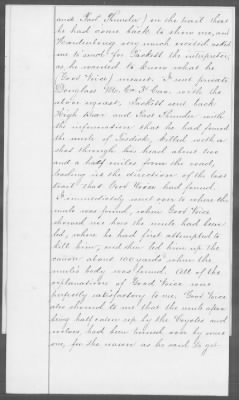 and Past Thunder) on the trail that
he had come back to show me, and
Hardenburg very much excited called
me to send for Packett the interpreter,
as he wanted to know what he
(Good Voice) meant. I sent private
Douglass Mr. Co. F. Cav. with the
above request, Packett sent back
High Bear and Past Thunder with
the information that he had found
the mule of killed with a
shot through his head about two
and a half miles from the road,
leading in the direction of the lost
trail that Good Voice had found.
I immediately went over to where the
mule was found, when Good Voice
showed me how the mule had been
led, where he had first attempted to
kill him, and then led him up the
cañon about 100 yards where the
mule's body was found. All of the
explanations of Good Voice were
perfectly satisfactory to me. Good Voice
also showed to me that the mule after
being half eaten up by the Coyotes and
wolves, had been turned over by some
one, for the reason as he said to get